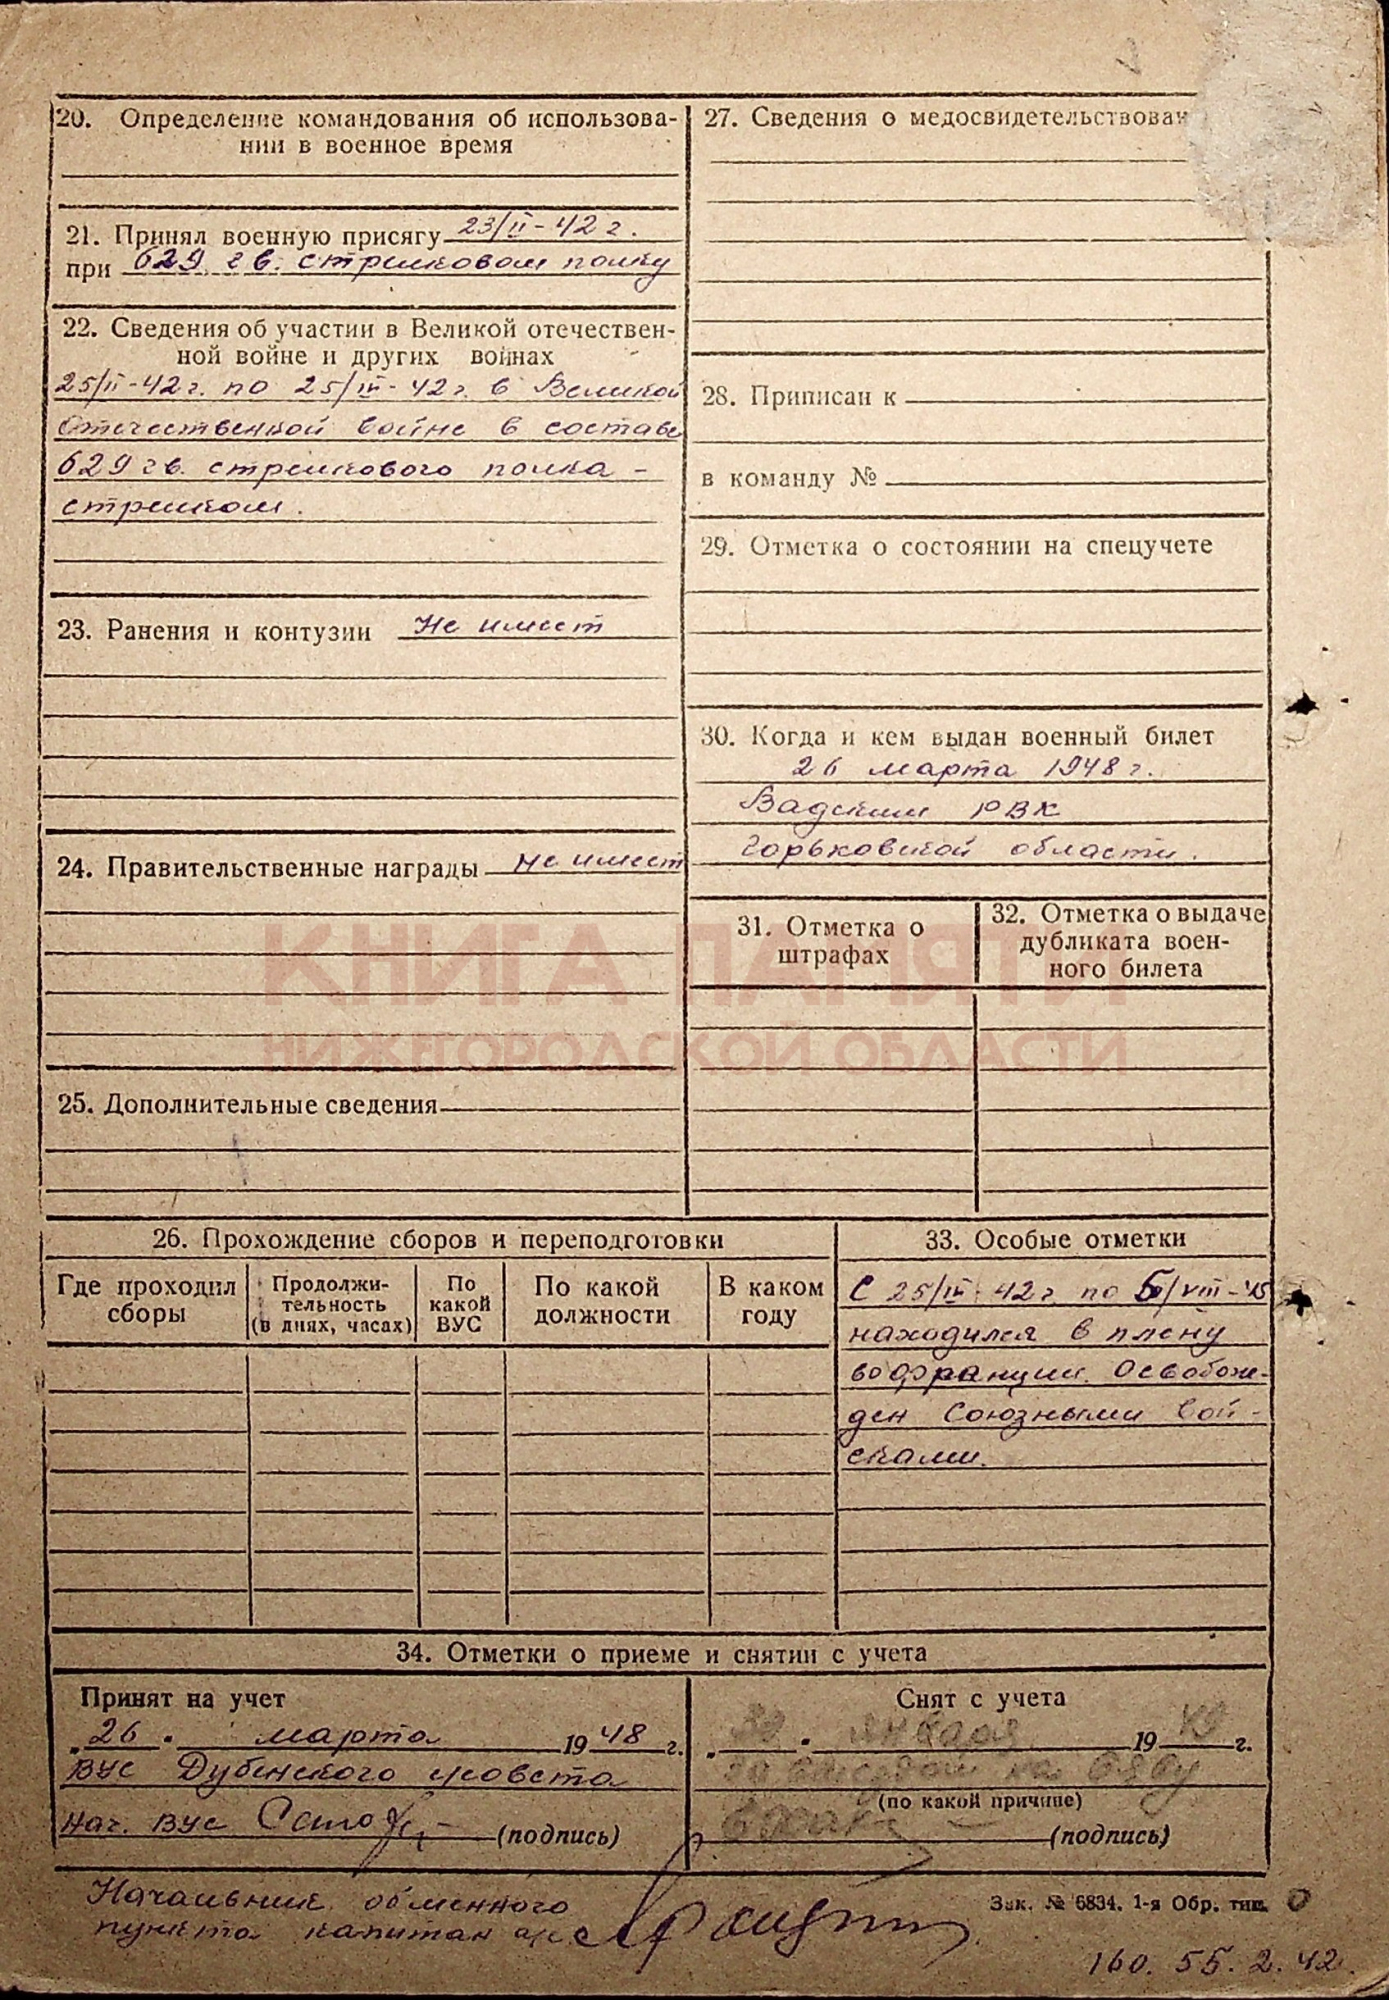 20. Определение командования об использова-
нии в военное время
21. Принял военную присягу 23/II-42 г.
при 629 гв. стрелковом полку
22. Сведения об участии в Великой отечествен-
ной войне и других войнах
25/II-42 г. по 25/III-42 г. в Великой
Отечественной войне в составе
629 гв. стрелкового полка -
стрелком.
23. Ранения и контузии Не имеет
24. Правительственные награды не имеет
25. Дополнительные сведения
26. Прохождение сборов и переподготовки
Где проходил
сборы
Продолжи-
тельность
(в днях, часах)
По
какой
ВУС
По какой
должности
В каком
году
27. Сведения о медосвидетельствован
28. Приписан к
в команду №
29. Отметка о состоянии на спецучете
30. Когда и кем выдан военный билет
26 марта 1948 г.
Вадским РВК
Горьковской области.
31. Отметка о
штрафах
32. Отметка о выдаче
дубликата воен-
ного билета
КНИГА ПАМЯТИ
НИЖЕГОРОДСКОЙ ОБЛАСТИ
33. Особые отметки
С 25/III-42 г. по 5/VIII-45
находился в плену
во Франции. Освобож-
ден Союзными вой-
сками.
34. Отметки о приеме и снятии с учета
Принят на учет
"26" марта 1948 г.
ВУС Дубенского с/совета
Нач. ВУС (подпись)
Снят с учета
января 1949 г.
(по какой причине)
(подпись)
Начальник обменного
пункта капитан а/с
Зак. № 6834. 1-я Обр. тип.
160. 55. 2. 42.